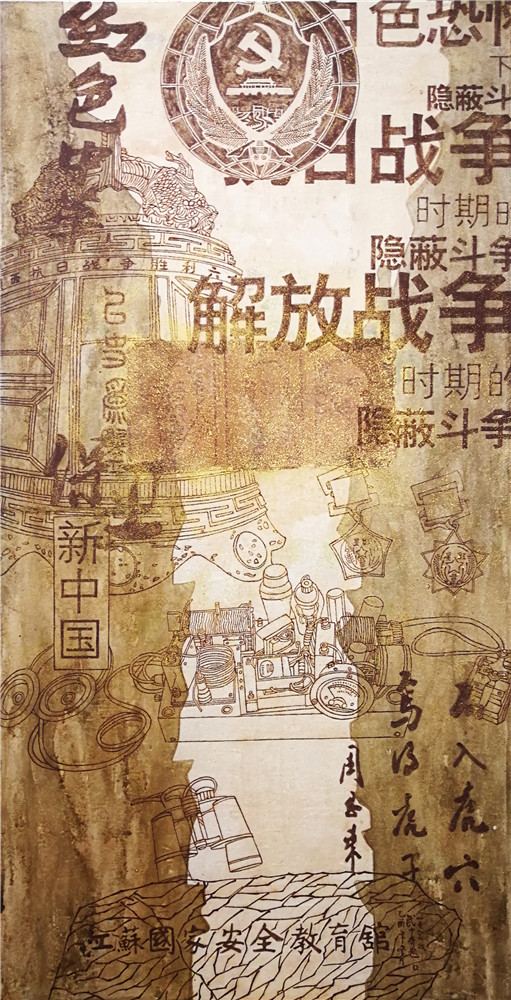 红色
白色恐怖
下
隐蔽斗
抗日战争
时期的
隐蔽斗争
抗日战争胜利六
解放战争
时期的
隐蔽斗争
新中国
不入虎穴
焉得虎子
周恩来
江蘇國家安全教育舘